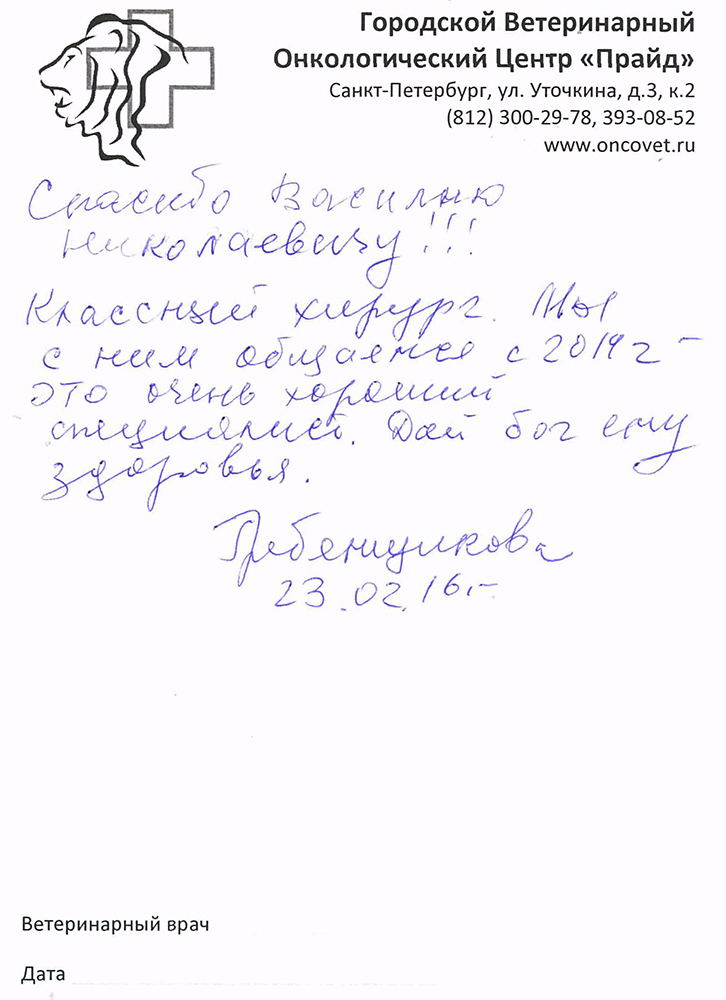 Городской Ветеринарный
Онкологический Центр «Прайд»
Санкт-Петербург, ул. Уточкина, д.3, к.2
(812) 300-29-78, 393-08-52
www.oncovet.ru
Спасибо Василию
Николаевичу!!!
Классный хирург. Мы
с ним общаемся с 2014 г -
это очень хороший
специалист. Дай бог ему
здоровья.
Гребенщикова
23.02.16.-
Ветеринарный врач
Дата